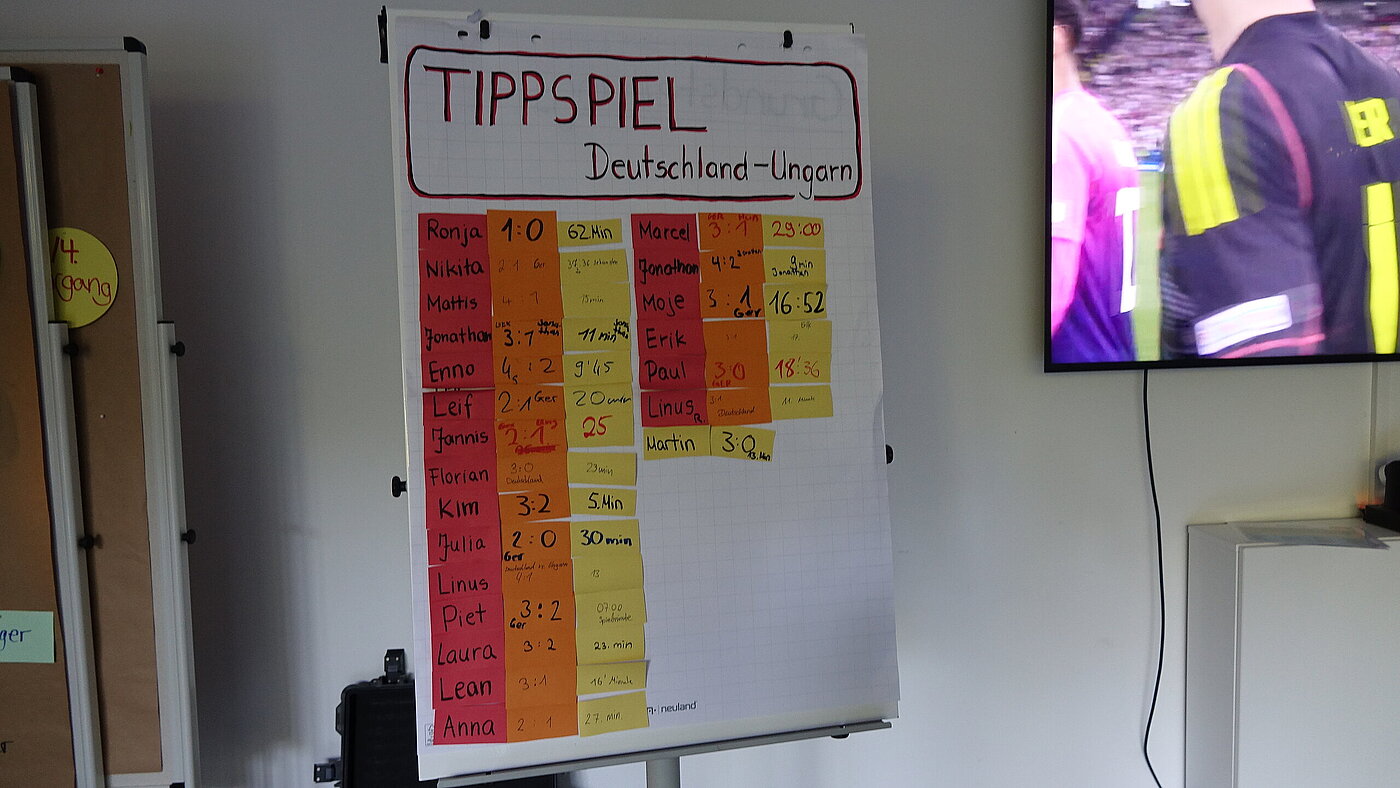 TIPPSPIEL
Deutschland-Ungarn
Ronja 1:0 62 Min
Nikita 2:1 Ger
Mattis 4:1 13 min
Jonathan 3:1 Jonathan 11 min Jonathan
Enno 4:2 9'45
Leif 2:1 Ger 20 min
Jannis 2:1 25
Florian 3:0 Deutschland 23 min
Kim 3:2 5.Min
Julia 2:0 Ger 30 min
Linus Deutschland vs. Ungarn 4:1 13
Piet 3:2 Ger 07:00 Spielminute
Laura 3:2 23. min
Lean 3:1 16' Minute
Anna 2:1 27. min.
Marcel GER HUN 3:1 29:00
Jonathan 4:2 9 min Jonathan
Moje 3:1 Ger 16:52
Erik Erik
Paul 3:0 GER 18:36
Linus R. 3:1 Deutschland 11. Minute
Martin 3:0 13. Min.
neuland
14.
gang
ger